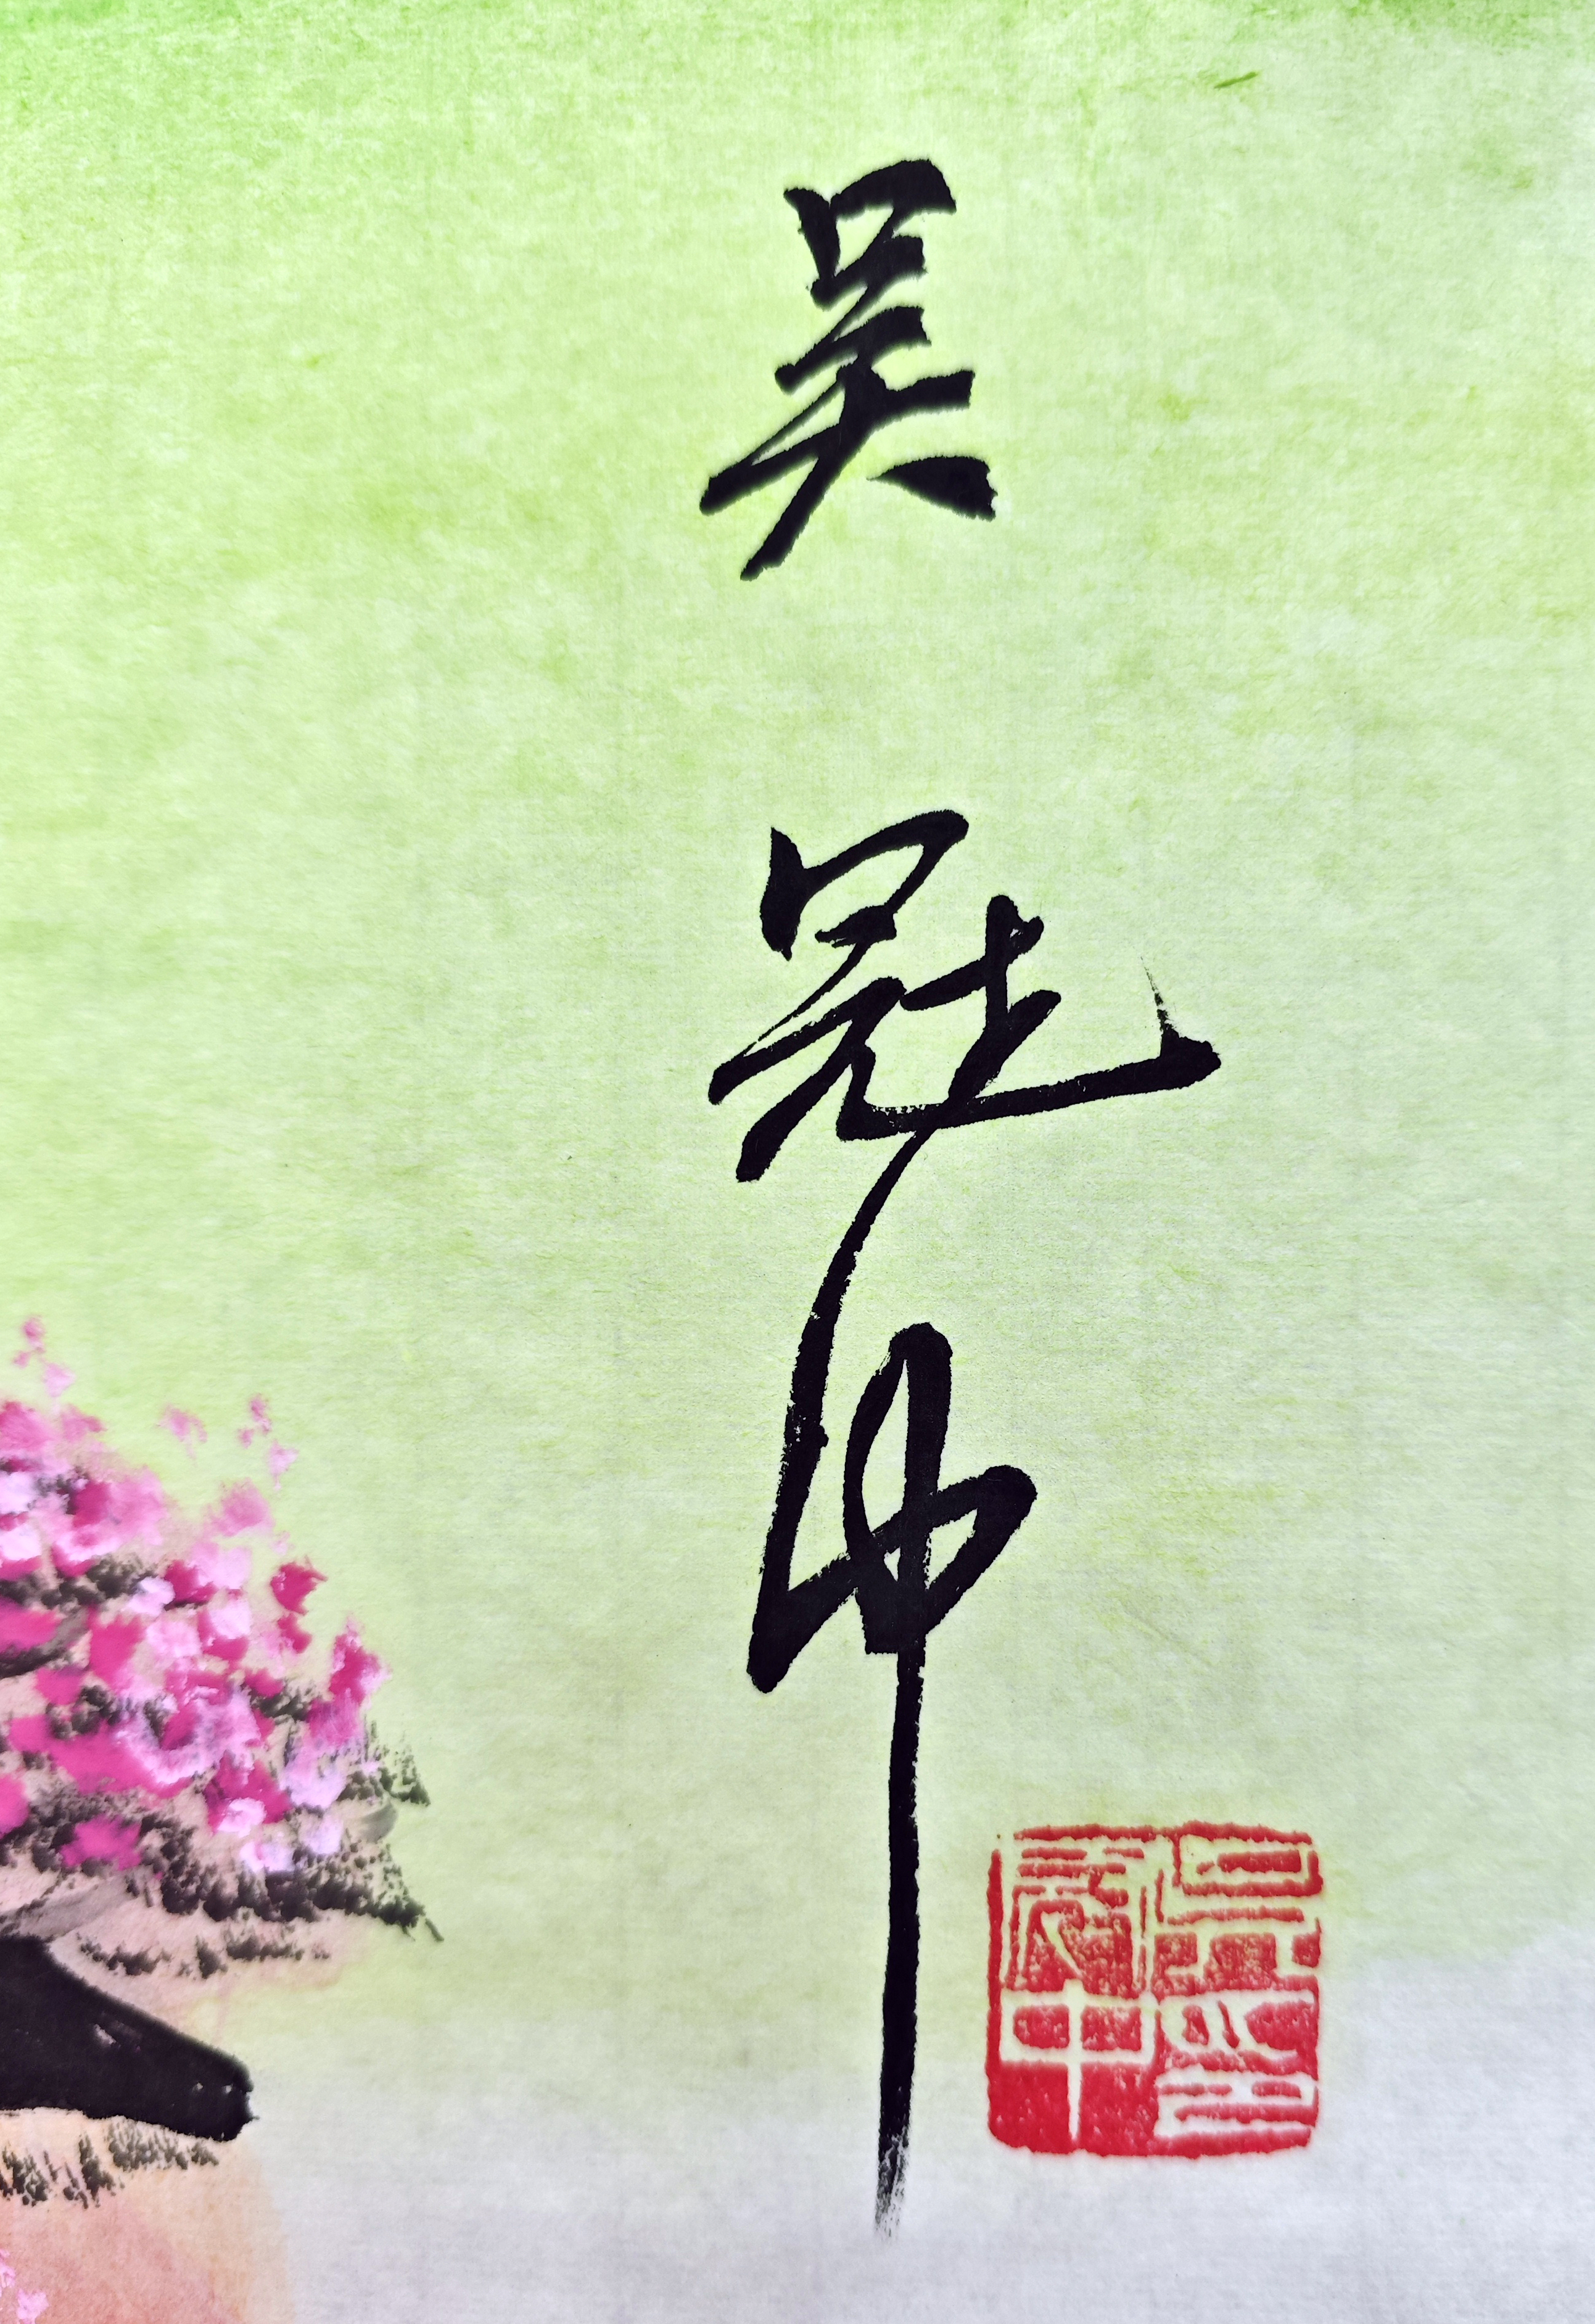 吴冠中
吴冠中印